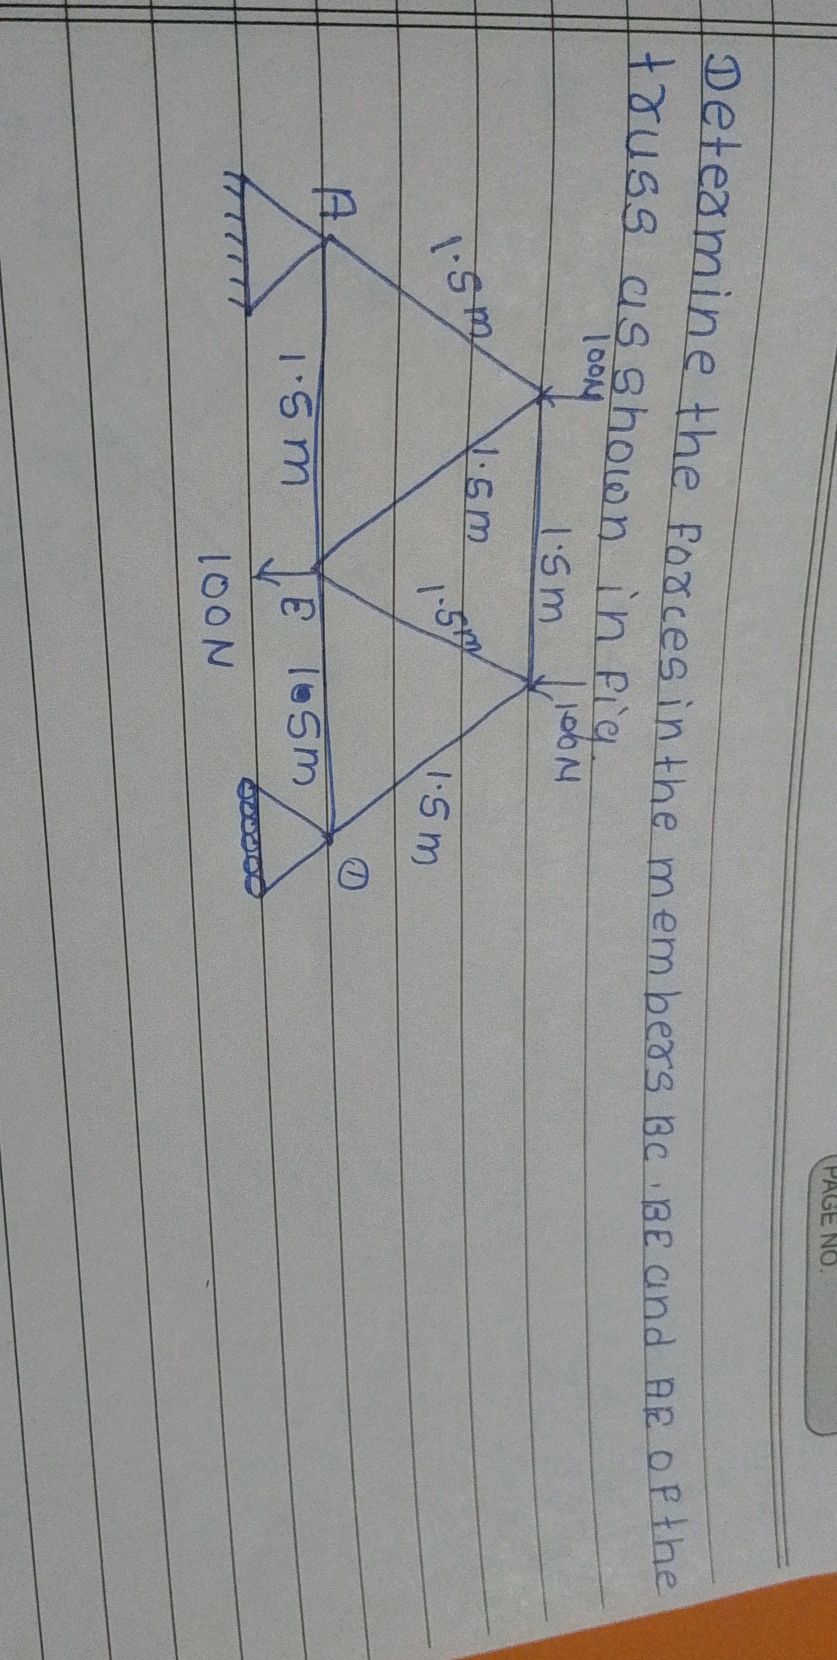 PAGE NO.
Determine the forces in the members BC, BE and AE of the
truss as shown in fig.
100N
100N
1.5m
1.5m
1.5m
1.5m
1.5m
A
1.5m
E
1.5m
①
100N